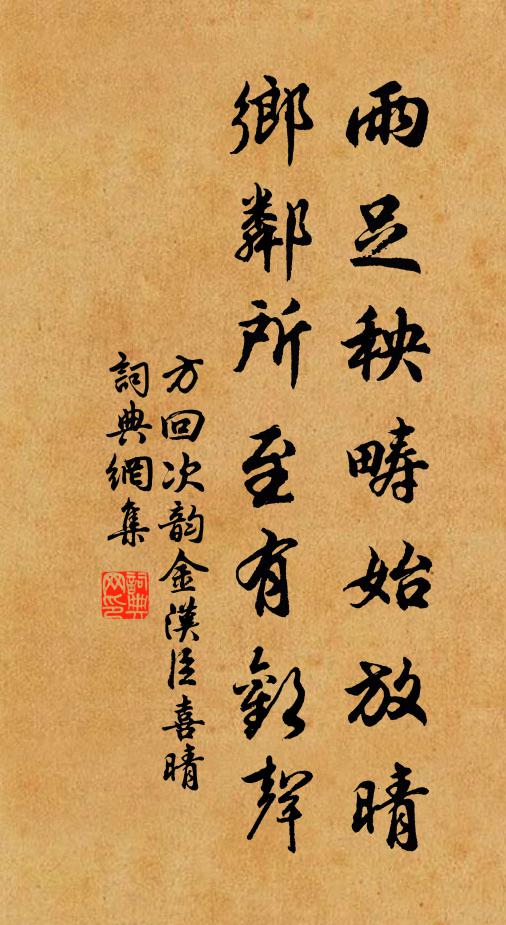 雨足秧疇始放晴
鄉鄰所至有歡聲
方回次韵金漢臣喜晴
詞典網集
詞典網印